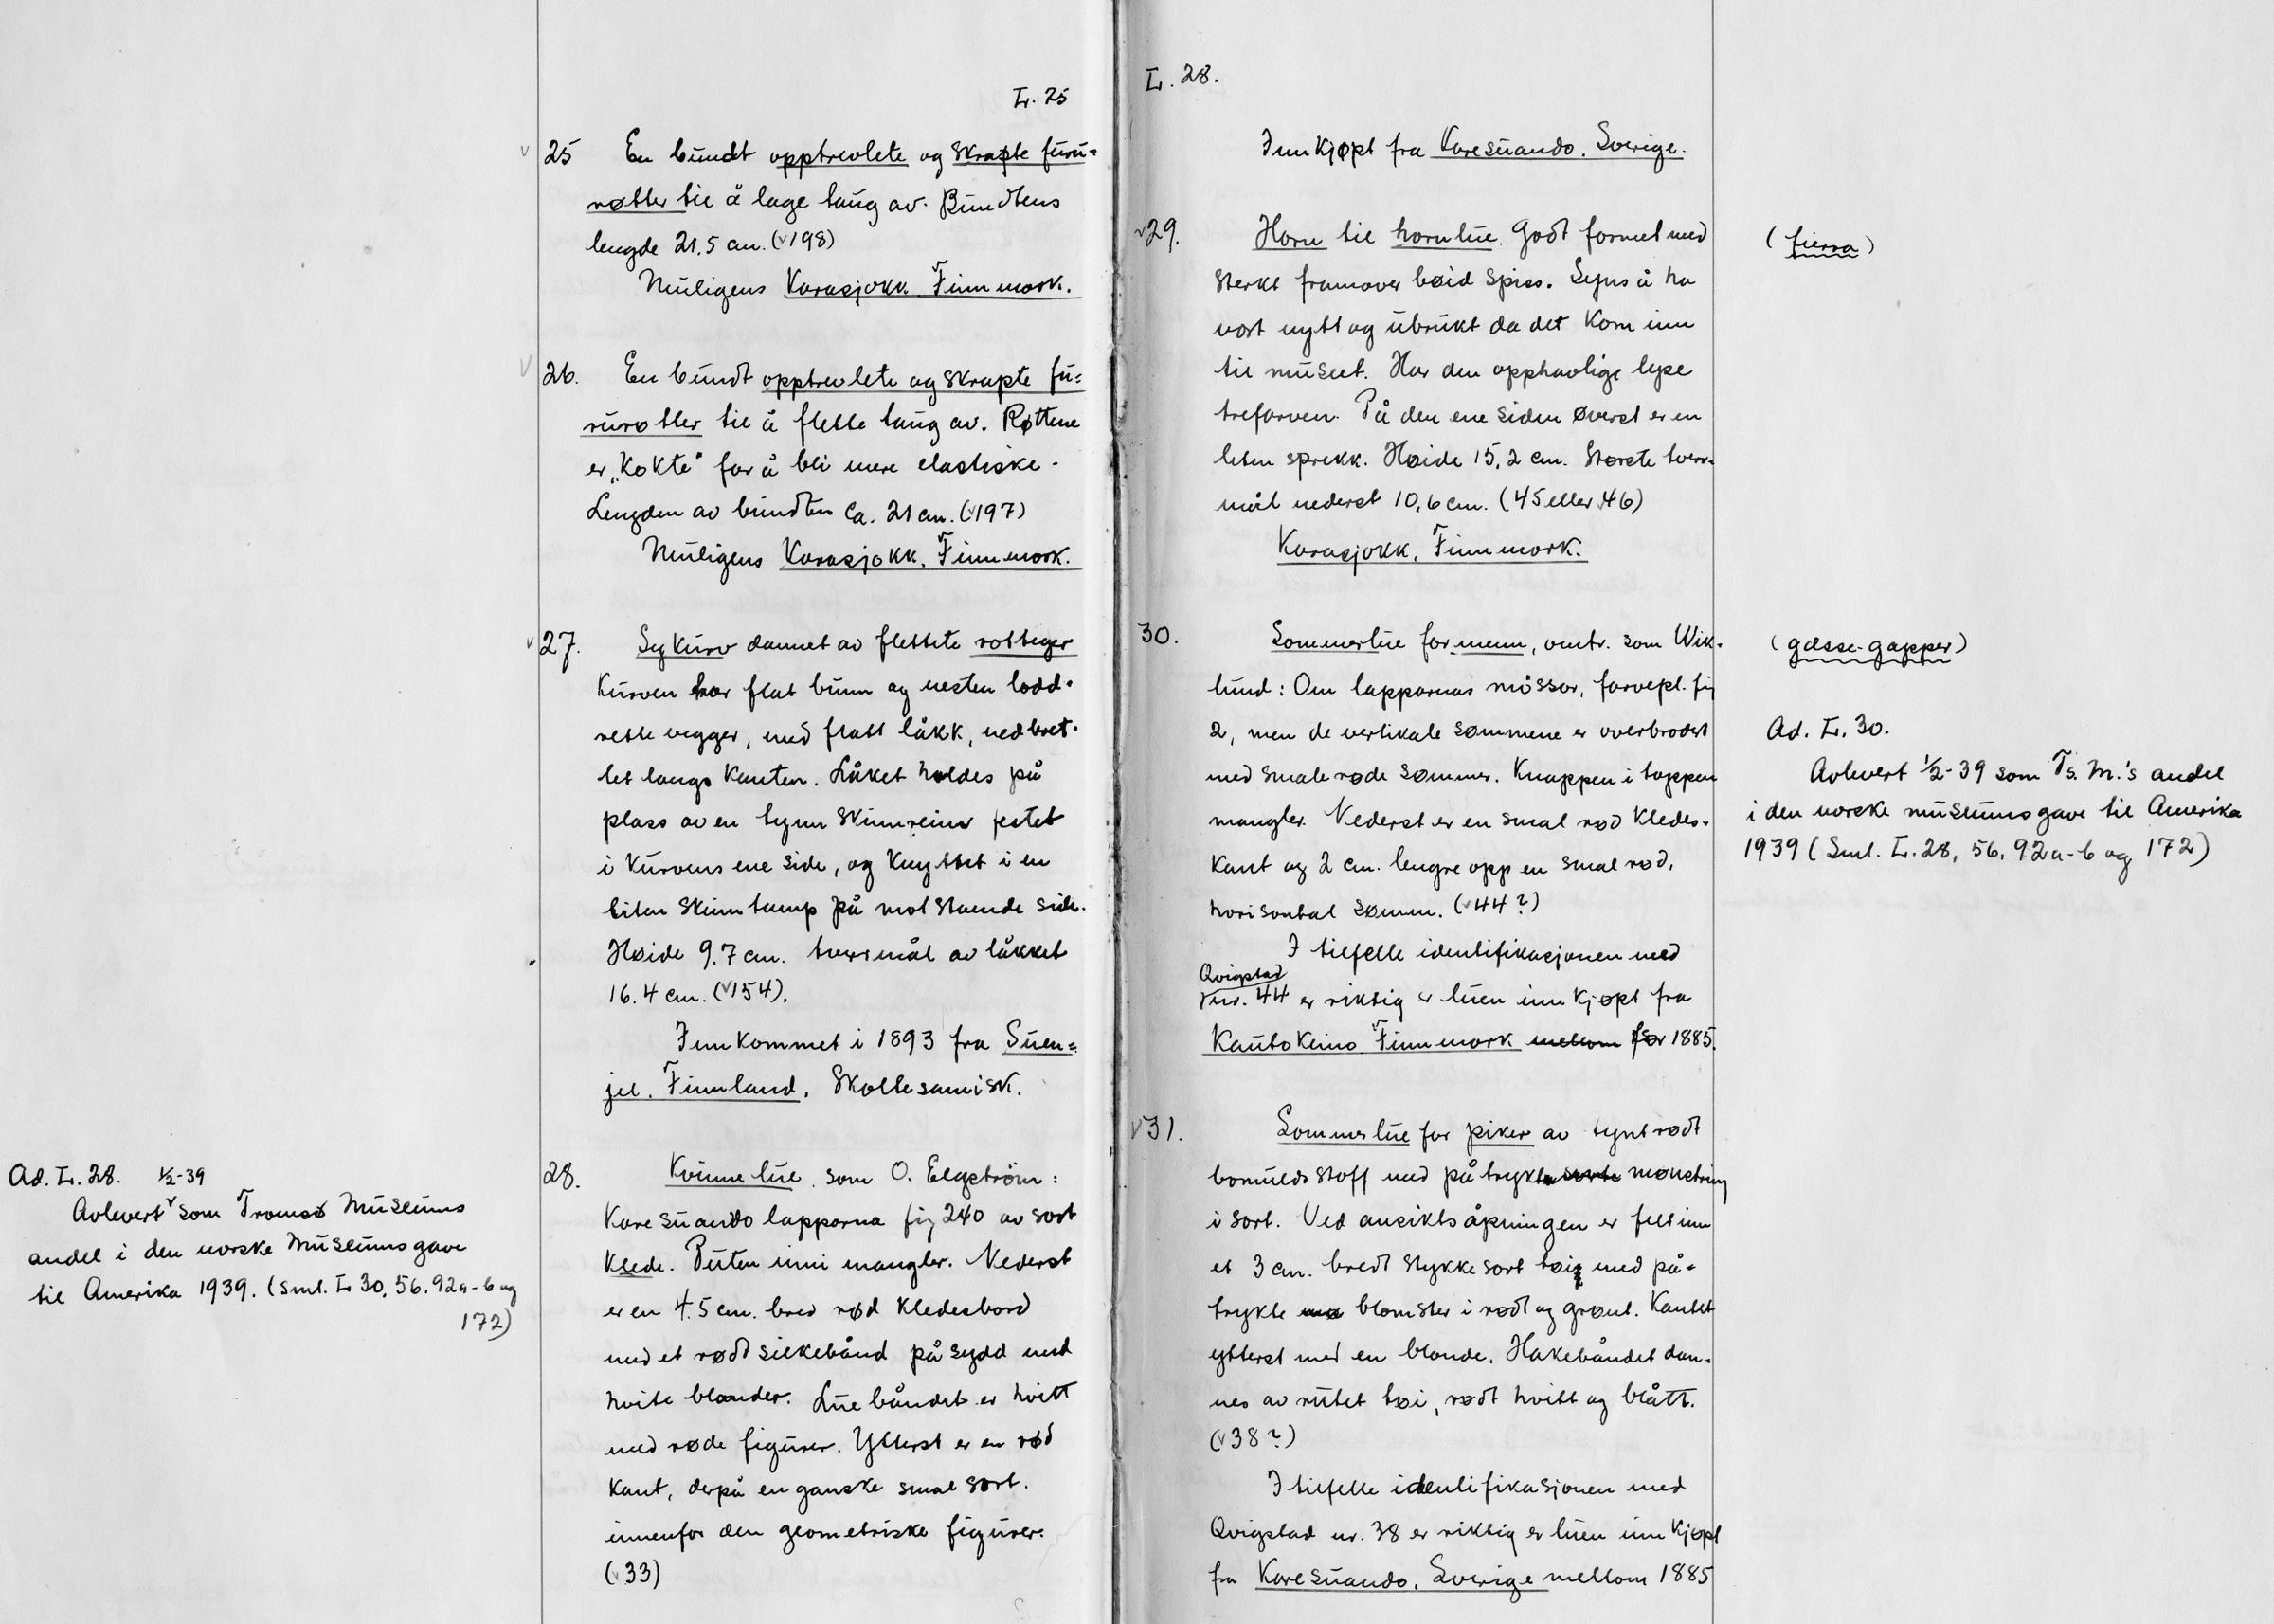 L. 25
25 En bundt opptrevlete og skrapte furu=
røtter til å lage taug av. Bundtens
lengde 21.5 cm. (198)
Muligens Karasjokk. Finnmark.
26. En bundt opptrevlete og skrapte fu=
rurøtter til å flette taug av. Røttene
er „kokte" for å bli mere elastiske.
Lengden av bundten ca. 21 cm. (197)
Muligens Karasjokk. Finnmark.
27. Sykurv dannet av flettete rottæger
Kurven har flat bunn og nesten lodd-
rette vegger, med flatt låkk, nedbret-
tet langs kanten. Låket holdes på
plass av en tynn skinnreim festet
i kurvens ene side, og knyttet i en
liten skinntamp på motstående side.
Høide 9.7 cm. tverrmål av låkket
16.4 cm. (154).
Innkommet i 1893 fra Suen=
jel. Finnland. Skoltesamisk.
28. Kvinnelue, som O. Elgström:
Karesuandolapparna fig 240 av sort
klede. Puten inni mangler. Nederst
er en 4.5 cm. bred rød kledesbord
med et rødt silkebånd påsydd med
hvite blonder. Luebåndet er hvitt
med røde figurer. Ytterst er en rød
kant, derpå en ganske smal sort.
innenfor den geometriske figurer.
(33)
Ad. L. 28. 1/2-39
Avlevert som Tromsø Museums
andel i den norske museumsgave
til Amerika 1939. (Sml. L 30, 56, 92a-b og
172)
L. 28.
Innkjøpt fra Karesuando. Sverige.
29. Horn til hornlue. Godt formet med
sterkt framover bøid spiss. Syns å ha
vært nytt og ubrukt da det kom inn
til museet. Har den opphavlige lyse
trefarven. På den ene siden øverst er en
liten sprekk. Høide 15,2 cm. Største tverr-
mål nederst 10,6 cm. (45 eller 46)
Karasjokk, Finnmark.
(fierra)
30. Sommerlue for menn, omtr. som Wik-
lund: Om lapparnas mössor, farvepl. fig
2, men de vertikale sømmene er overbrodert
med smale røde sømmer. Knappen i toppen
mangler. Nederst er en smal rød kledes-
kant og 2 cm. lengre opp en smal rød,
horisontal søm. (44?)
I tilfelle identifikasjonen med
Qvigstad
nr. 44 er riktig er luen innkjøpt fra
Kautokeino Finnmark mellom før 1885.
(gæsse-gapper)
Ad. L. 30.
Avlevert 1/2-39 som Ts. M.'s andel
i den norske museumsgave til Amerika
1939 (Sml. L. 28, 56, 92a-b og 172)
31. Sommerlue for piker av tynt rødt
bomuldsstoff med påtrykte sorte mønstring
i sort. Ved ansiktsåpningen er felt inn
et 3 cm. bredt stykke sort tøi med på-
trykte blomster i rødt og grønt. Kantet
ytterst med en blonde. Hakebåndet dan-
nes av rutet tøi, rødt hvitt og blått.
(38?)
I tilfelle identifikasjonen med
Qvigstad nr. 38 er riktig er luen innkjøpt
fra Karesuando, Sverige mellom 1885